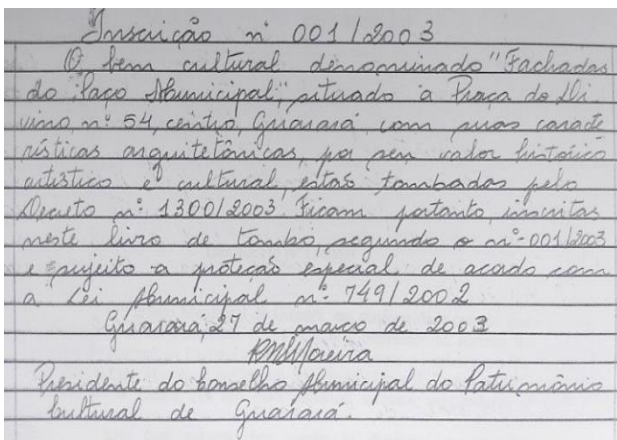 Inscrição nº 001/2003
O bem cultural denominado "Fachadas
do Paço Municipal", situado à Praça do Di
vino, nº 54, centro, Guarará, com suas caracte
rísticas arquitetônicas, por seu valor histórico
artístico e cultural, estão tombadas pelo
Decreto nº 1300/2003. Ficam portanto, inscritas
neste livro de tombo, segundo o nº 001/2003
e sujeito a proteção especial de acordo com
a Lei Municipal nº 749/2002
Guarará, 27 de março de 2003
Presidente do Conselho Municipal do Patrimônio
Cultural de Guarará.